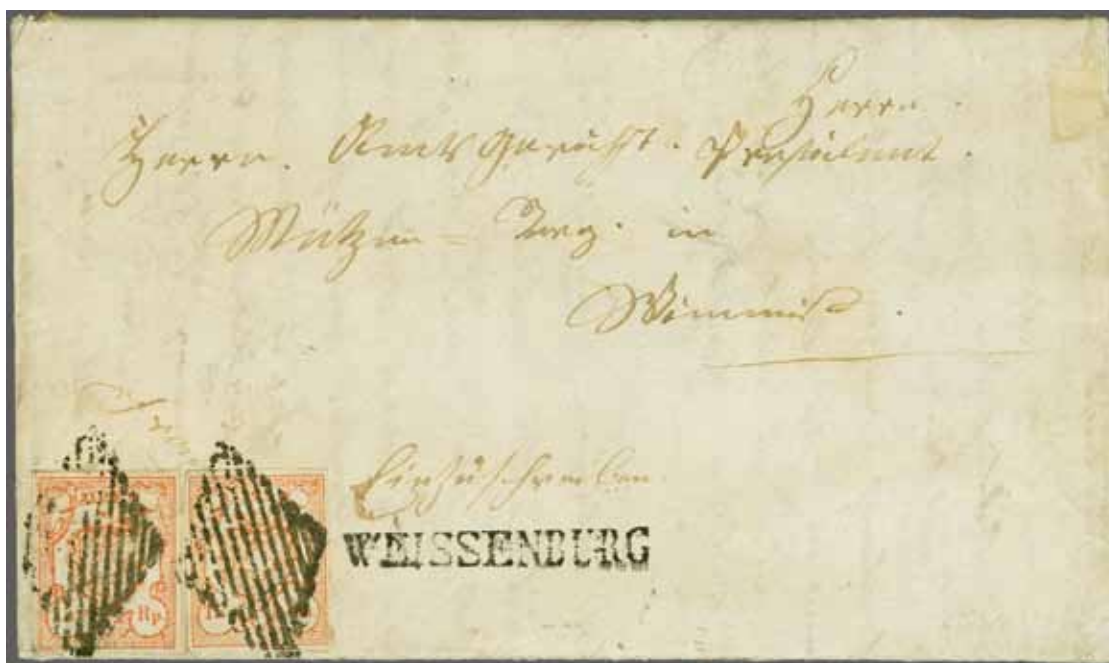 Herrn
Herrn. Amts Gericht. President.
in
Wimmis.
Franco
Einzuschreiben
WEISSENBURG
Rp